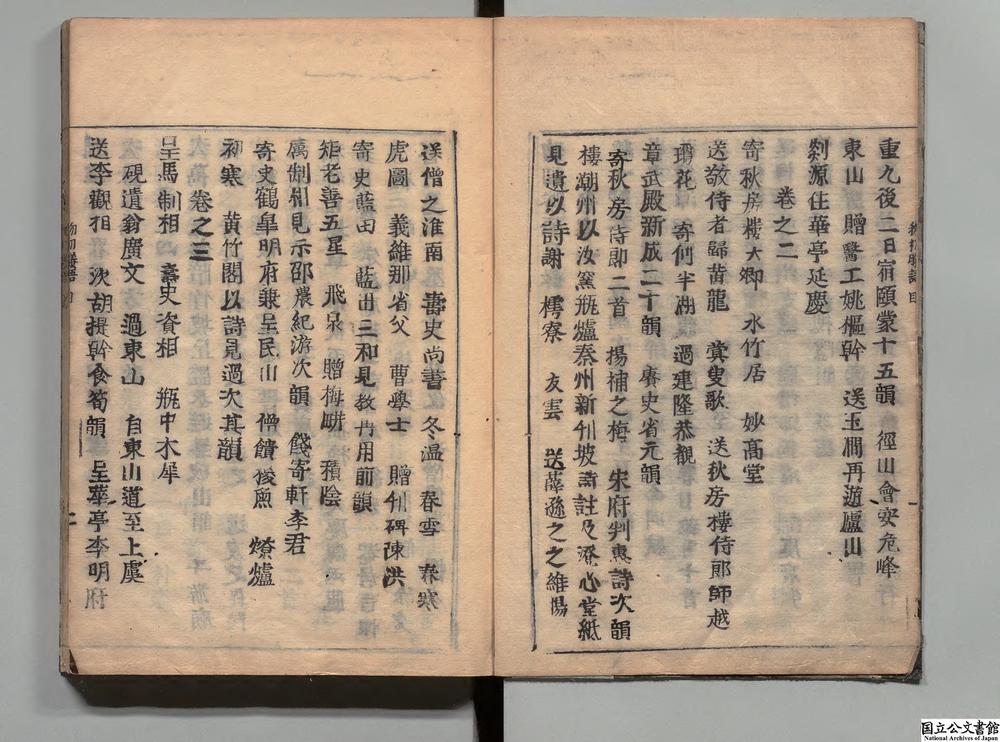 重九後二日宿頤蒙十五韻　徑山會安危峰
東山　贈醫工姚樞幹　送玉磵再遊廬山
剡源住華亭延慶
卷之二
寄秋房樓大卿　水竹居　妙高堂
送敬侍者歸黃龍　糞叟歌　送秋房樓侍郎師越
瓊花　寄何半湖　過建隆恭覩
章武殿新成二十韻　賡史省元韻
寄秋房侍郎二首　揚補之梅　朱府判惠詩次韻
樓潮州以汝窯瓶爐泰州新刊坡詩註及澄心堂紙
見遺以詩謝　樗寮　友雲　送薛遜之之維陽
送僧之淮南　壽史尚書　冬温　春雪　春寒
虎圖　義維那省父　曹學士　贈刊碑陳洪
寄史藍田　藍田三和見教再用前韻
矩老善五星　飛泉　贈梅畊　積陰
厲制相見示邵農紀游次韻　餞寄軒李君
寄史鶴皐明府兼呈民山　僧饋狻煎　燎爐
初寒　黄竹閣以詩見過次其韻
卷之三
呈馬制相　壽史資相　瓶中木犀
硯遺翁廣文　過東山　自東山道至上虞
送李觀相　次胡提幹食筍韻　呈華亭李明府
物初賸語　目　一
物初賸語　目　二
国立公文書館
National Archives of Japan